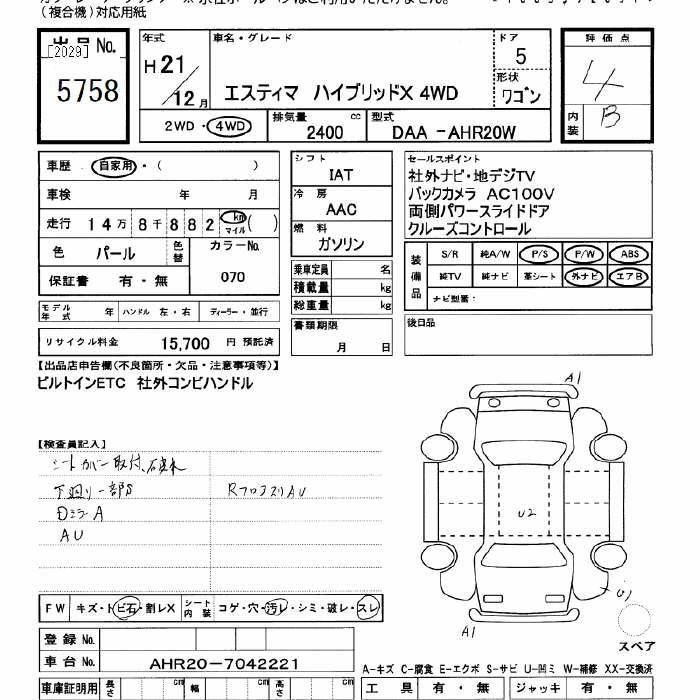 (複合機)対応用紙
出品 No.
[2029]
5758
年式
H21/12月
車名・グレード
エスティマ ハイブリッドX 4WD
ドア
5
形状
ワゴン
評価点
4
内装
B
2WD・4WD
排気量
2400 cc
型式
DAA -AHR20W
車歴 自家用・( )
車検 年 月
走行 14万8千882 km マイル ( )
色 パール
色替
カラーNo.
070
保証書 有・無
モデル年式 年 ハンドル 左・右 ディーラー・並行
リサイクル料金 15,700 円 預託済
シフト
IAT
冷房
AAC
燃料
ガソリン
乗車定員 名
積載量 kg
総重量 kg
書類期限
月 日
セールスポイント
社外ナビ・地デジTV
バックカメラ AC100V
両側パワースライドドア
クルーズコントロール
装備品
S/R 純A/W P/S P/W ABS
純TV 純ナビ 革シート 外ナビ エアB
ナビ型番:
後日品
【出品店申告欄(不良箇所・欠品・注意事項等)】
ビルトインETC 社外コンビハンドル
【検査員記入】
シートカバー取付
下廻り一部S
DミラーA
AU
A1
U2
U1
A1
スペア
FW キズ・トビ石・割レX
シート内装 コゲ・穴・汚レ・シミ・破レ・スレ
登録 No.
車台 No. AHR20-7042221
A-キズ C-腐食 E-エクボ S-サビ U-凹ミ W-補修 XX-交換済
車庫証明用 長さ cm 幅 cm 高さ cm
工具 有・無 ジャッキ 有・無